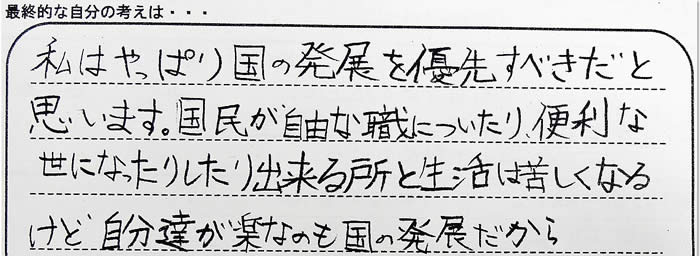 最終的な自分の考えは・・・
私はやっぱり国の発展を優先すべきだと
思います。国民が自由な職についたり、便利な
世になったりしたり出来る所と生活は苦しくなる
けど自分達が楽なのも国の発展だから